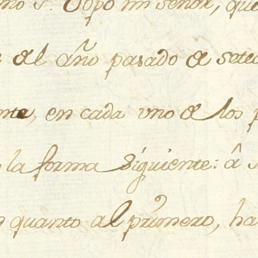 mo S.r Obpo mi señor, que
el año pasado de sete
nte, en cada uno de los p
la forma siguiente: â
quanto al primero, ha